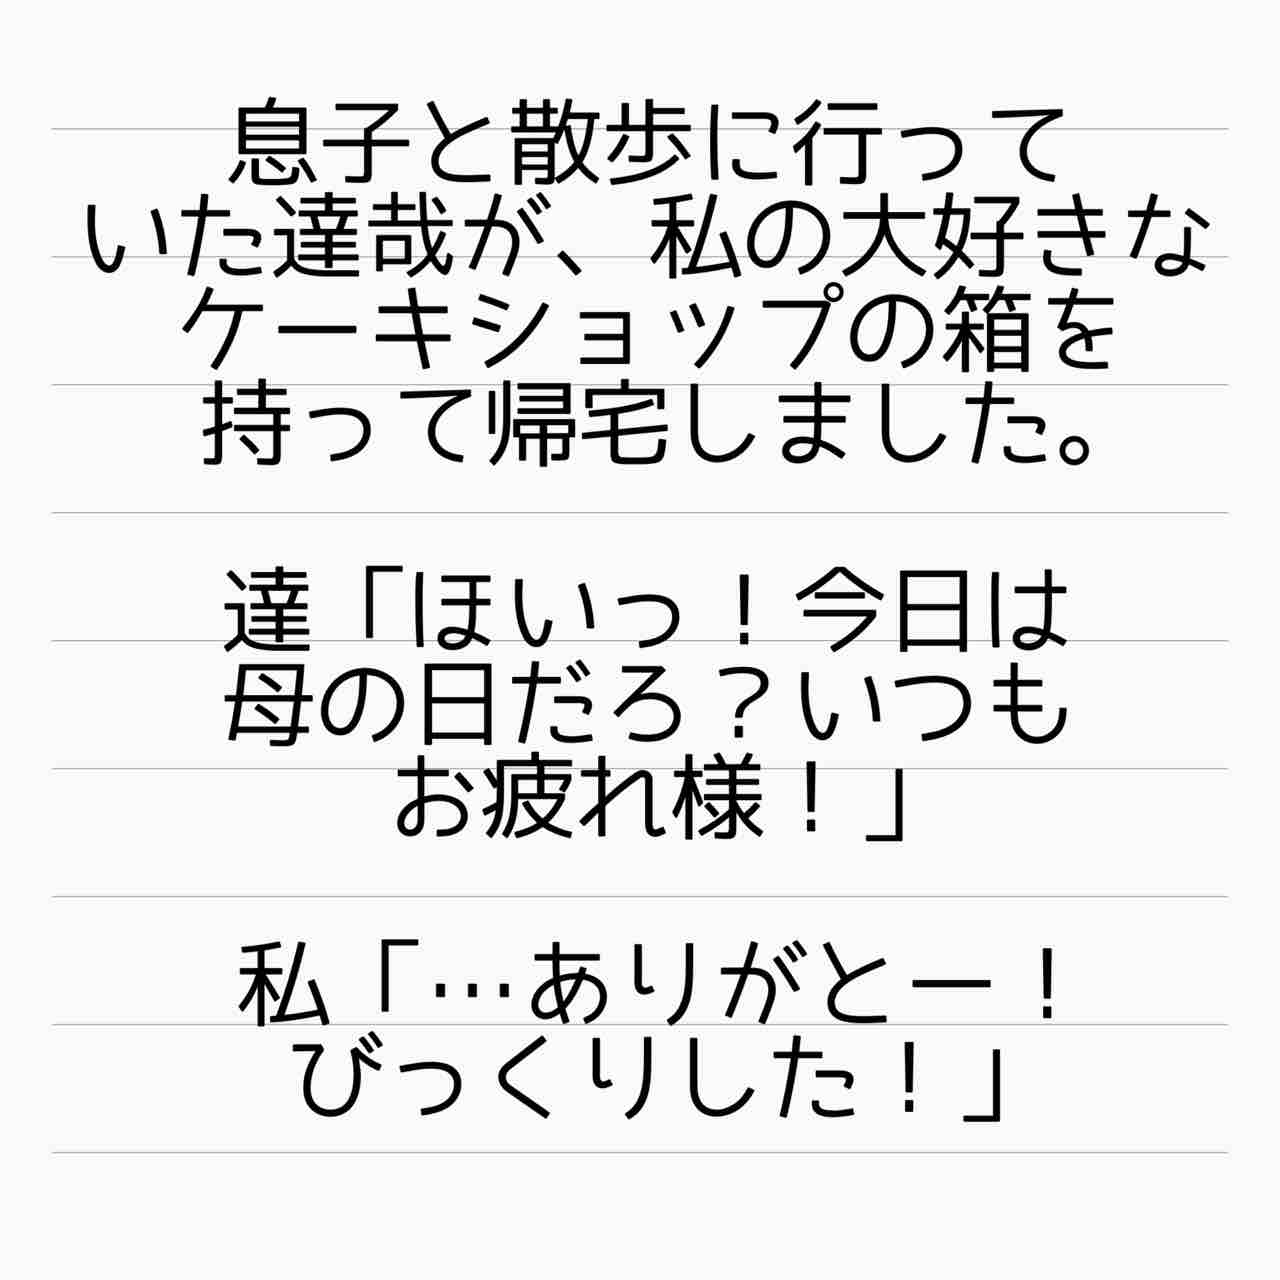 息子と散歩に行って
いた達哉が、私の大好きな
ケーキショップの箱を
持って帰宅しました。
達「ほいっ！今日は
母の日だろ？いつも
お疲れ様！」
私「…ありがとー！
びっくりした！」